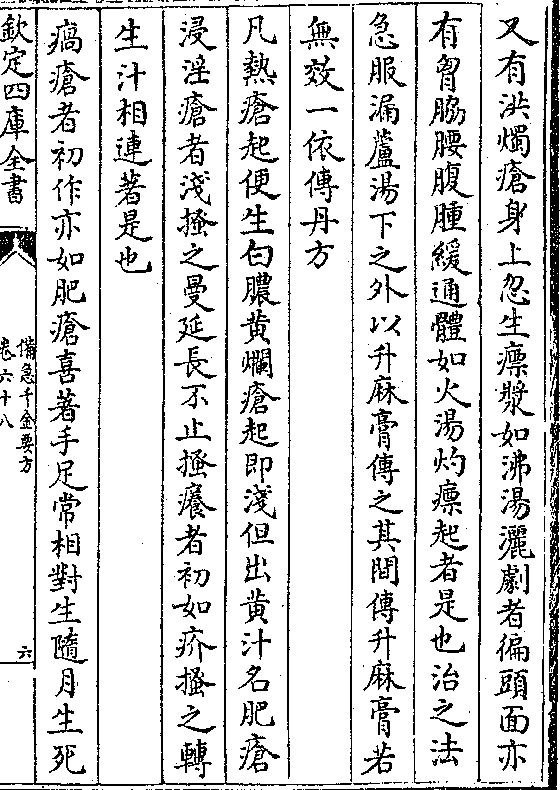 又有洪燭瘡身上忽生瘭漿如沸湯灑劇者徧頭面亦
有胷脇腰腹腫緩通體如火湯灼瘭起者是也治之法
急服漏蘆湯下之外以升麻膏傅之其間傅升麻膏若
無效一依傅丹方
凡熱瘡起便生白膿黄爛瘡起即淺但出黄汁名肥瘡
浸淫瘡者淺搔之曼延長不止搔癢者初如疥搔之轉
生汁相連著是也
瘑瘡者初作亦如肥瘡喜著手足常相對生隨月生死
欽定四庫全書
備急千金要方
卷六十八
六